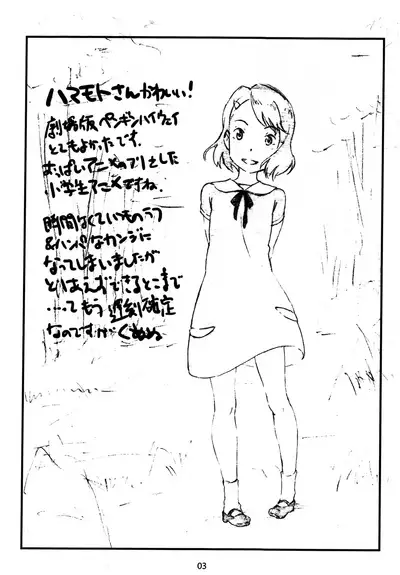 ハマモトさんかわいい!
劇場版 ペンギンハイウェイ
とてもよかったです。
小学生アニメですね。
時間なくていつものラフ
&ハンパなカンジに
なってしまいましたが
とりあえずできるとこまで
…てもう遅刻確定
なのですが ぐぬぬ
03